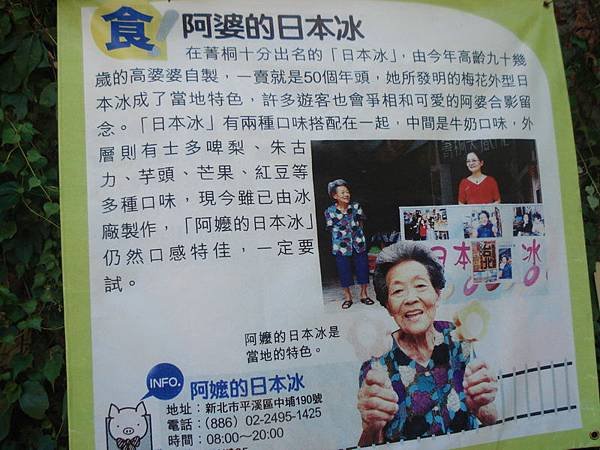 食!阿婆的日本冰
在菁桐十分出名的「日本冰」,由今年高齡九十幾
歲的高婆婆自製,一賣就是50個年頭,她所發明的梅花外型日
本冰成了當地特色,許多遊客也會爭相和可愛的阿婆合影留
念。「日本冰」有兩種口味搭配在一起,中間是牛奶口味,外
層則有士多啤梨、朱古
力、芋頭、芒果、紅豆等
多種口味,現今雖已由冰
廠製作,「阿嬤的日本冰」
仍然口感特佳,一定要
試。
日本 冰
阿嬤的日本冰是
當地的特色。
INFO. 阿嬤的日本冰
地址:新北市平溪區中埔190號
電話:(886) 02-2495-1425
時間:08:00~20:00